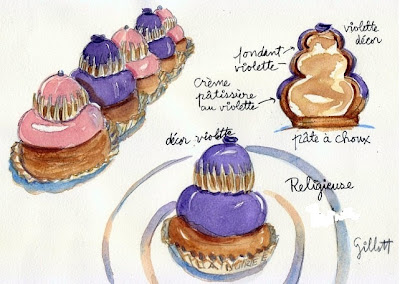 violette
décor
fondant
violette
Crème
pâtissière
au violette
pâte à choux
décor violette
Religieuse
Gillott